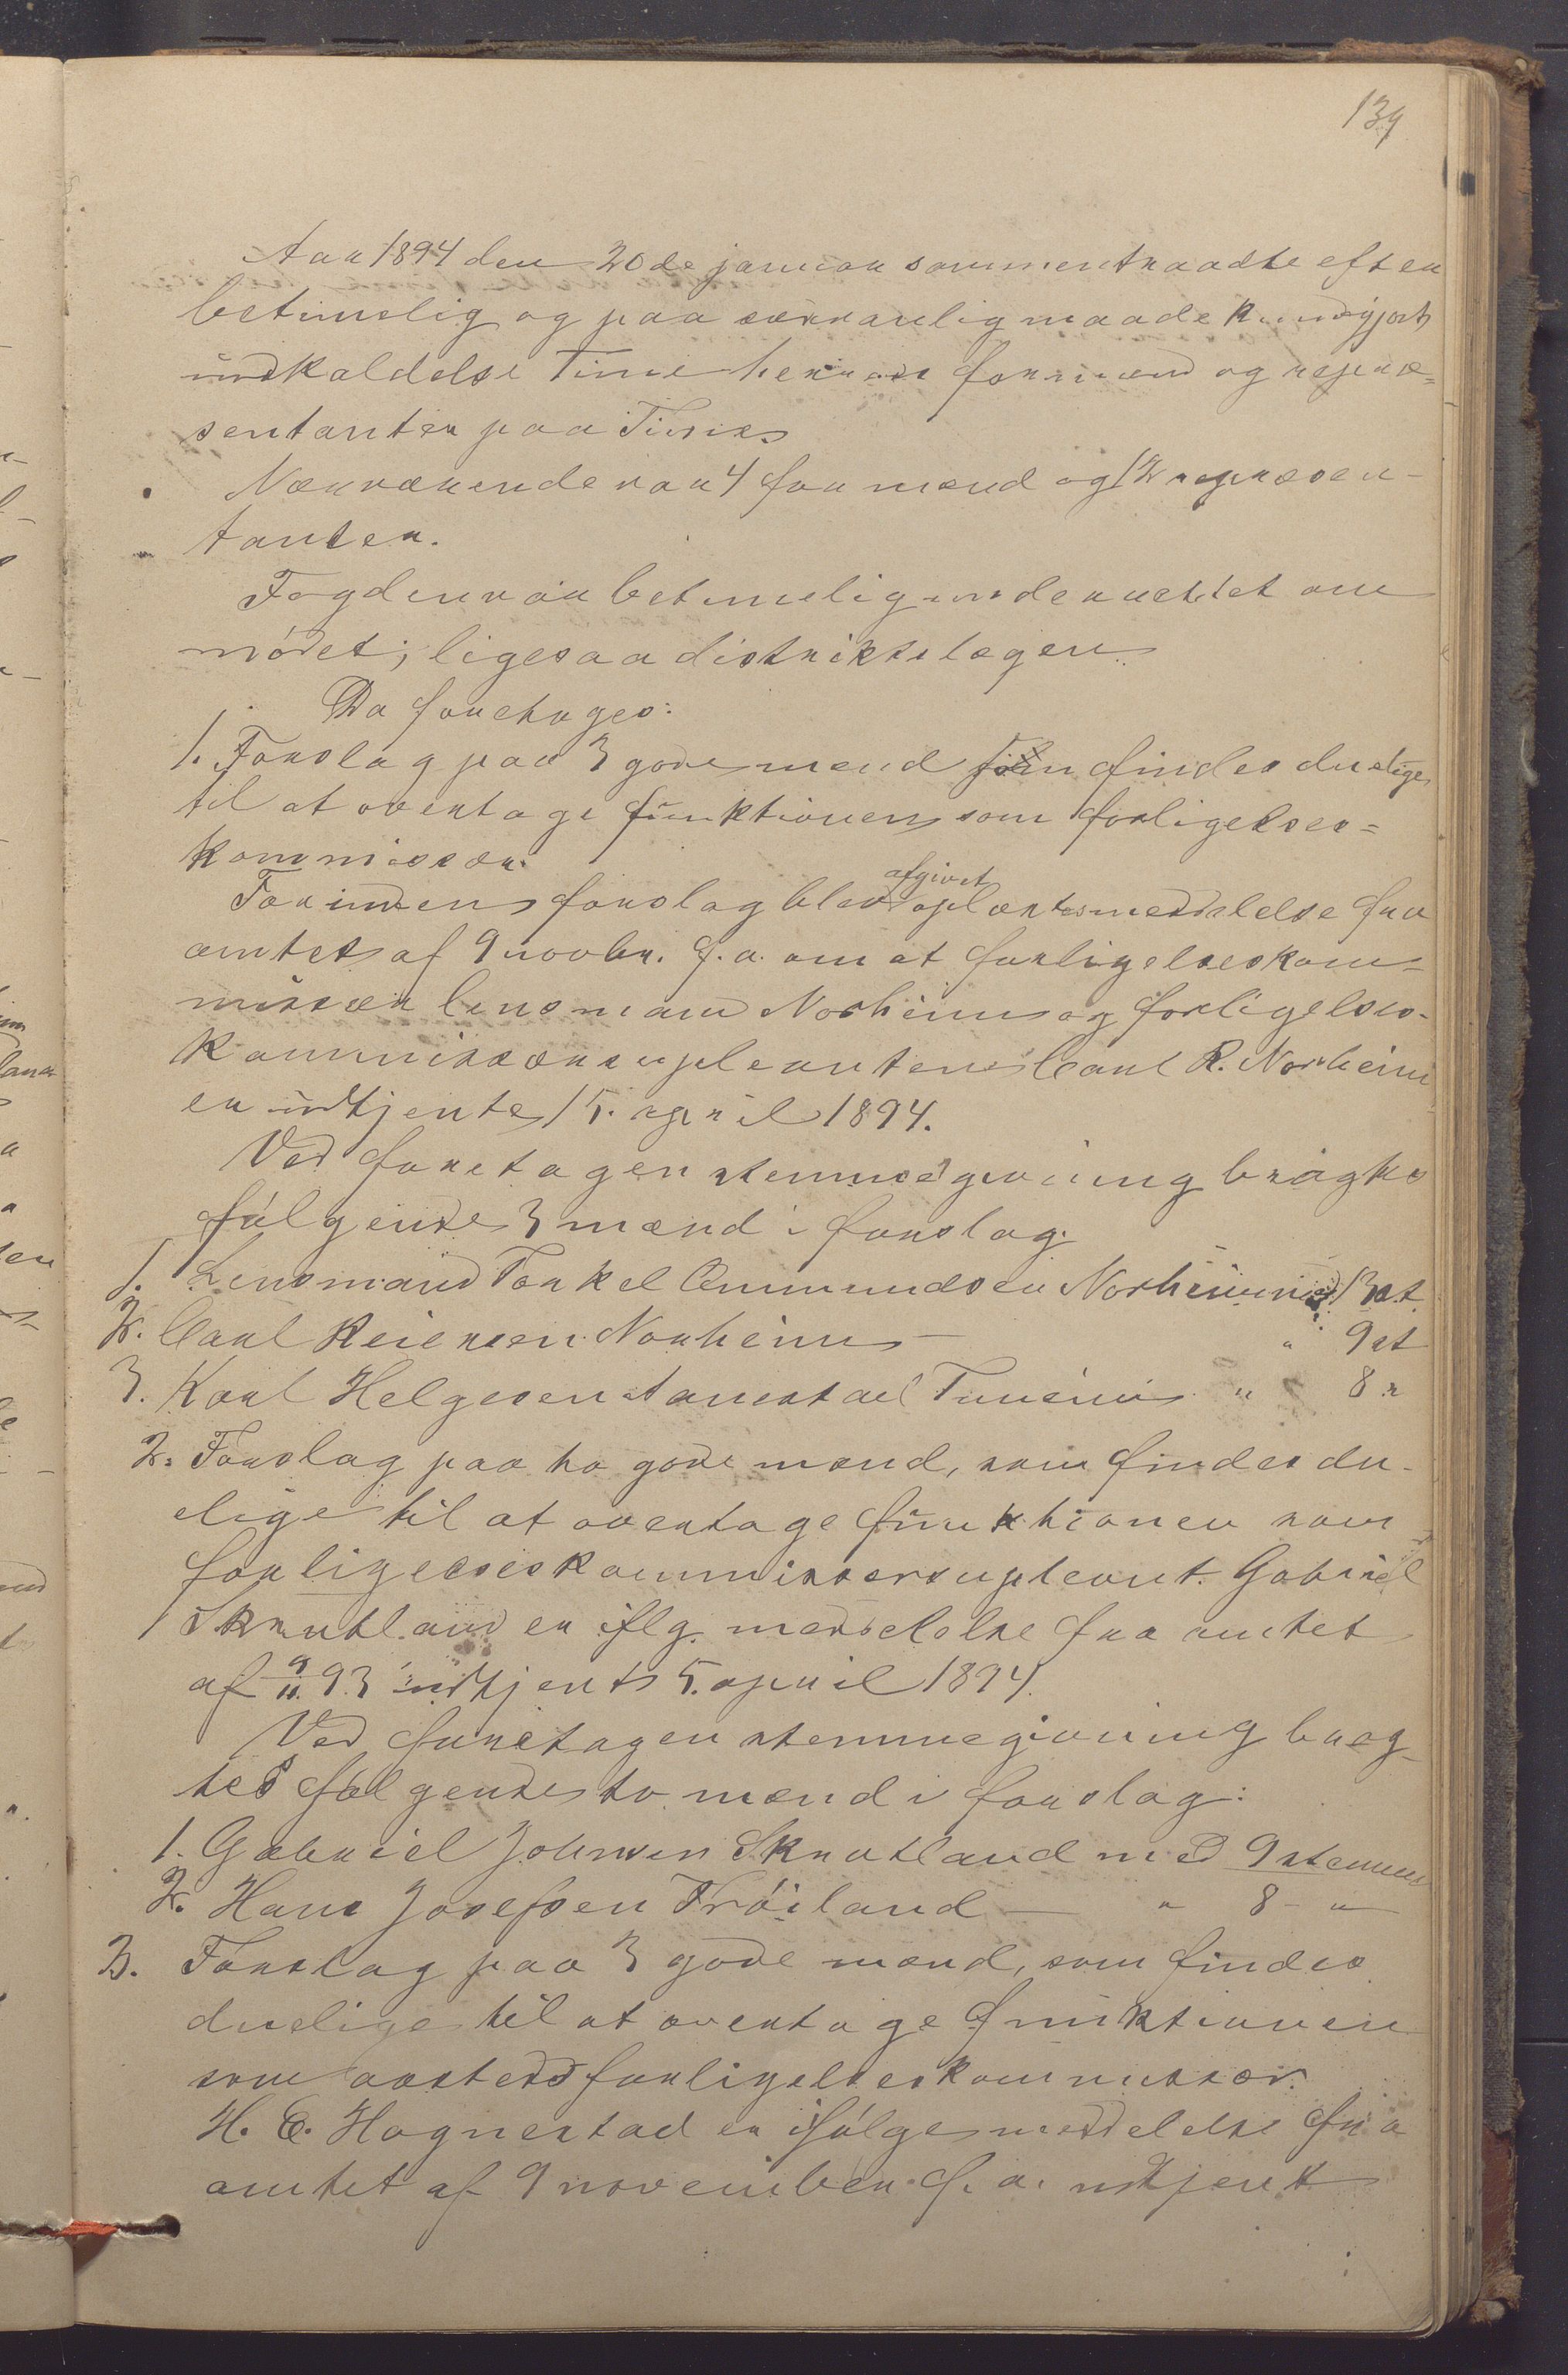 139
Aar 1894 den 20de januar sammentraadte efter
betimelig og paa sædvanlig maade kundgjort
indkaldelse Time herreds formænd og repræ=
sentanter paa Time.
Nærværende var 4 formænd og 12 repræsen-
tanter.
Fogden var betimelig underrettet om
mødet; ligesaa distriktslægen.
Da foretoges:
1. Forslag paa 3 gode mænd som findes duelige
til at overtage funktionen som forligelses=
kommissær.
Forinden forslag blev afgivet oplæstes meddelelse fra
amtet af 9 novbr. f.a. om at forligelseskom=
missær lensmand Norheim og forligelses-
kommissærsupleanten Carl R. Norheim
er udtjente 15. april 1894.
Ved foretagen stemmegivning bragtes
følgende 3 mænd i forslag.
1. Lensmand Torkel Ommundsen Norheim med 13 st.
2. Carl Reiersen Norheim — " 9 st
3. Karl Helgesen Aanestad Tunheim " 8 "
2. Forslag paa to gode mænd, som findes du-
elige til at overtage funktionen som
forligelseskommissersupleant. Gabriel
Skrutland er iflg. meddelelse fra amtet
af 9/11 93 udtjent 5. april 1894.
Ved foretagen stemmegivning brag-
tes følgende to mænd i forslag:
1. Gabriel Johnsen Skrutland med 9 stemmer
2. Hans Josefsen Frøiland — " 8 - "
3. Forslag paa 3 gode mænd, som findes
duelige til at overtage funktionen
som aastedsforligelseskommissær.
H. E. Hognestad er ifølge meddelelse fra
amtet af 9 november f. a. udtjent